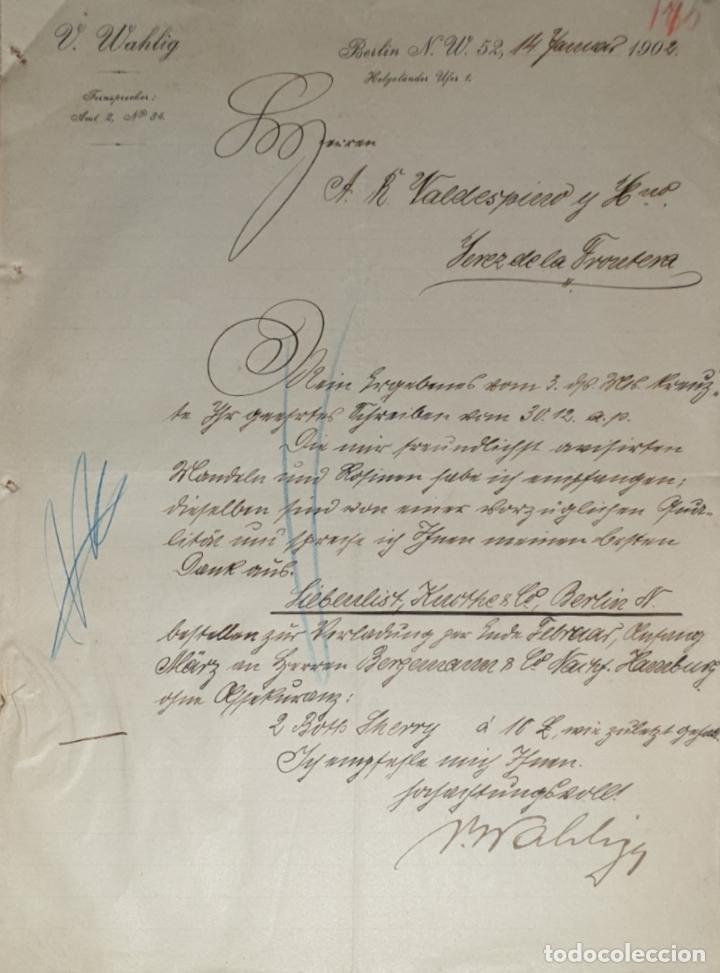 V. Wahlig
Fernsprecher:
Amt 2, No 34.
Berlin N. W. 52, 14 Januar 1902.
Helgoländer Ufer 1.
Herren
A. R. Valdespino y Hno.
Jerez de la Frontera
Mein Ergebenes vom 3. ds Mts. kreuz-
te Ihr geehrtes Schreiben vom 30.12. a.p.
Die mir freundlichst avisirten
Mandeln und Rosinen habe ich empfangen;
dieselben sind von einer vorzüglichen Qua-
lität und spreche ich Ihnen meinen besten
Dank aus.
Liebenlist, Knothe & Co, Berlin N.
bestellen zur Verladung per Ende Februar, Anfang
März an Herren Bergemann & Co Nachf. Hamburg
ohne Assekuranz:
2 Botts Sherry á 16 £, wie zuletzt
Ich empfehle mich Ihnen.
hochachtungsvoll!
V. Wahlig
todocoleccion